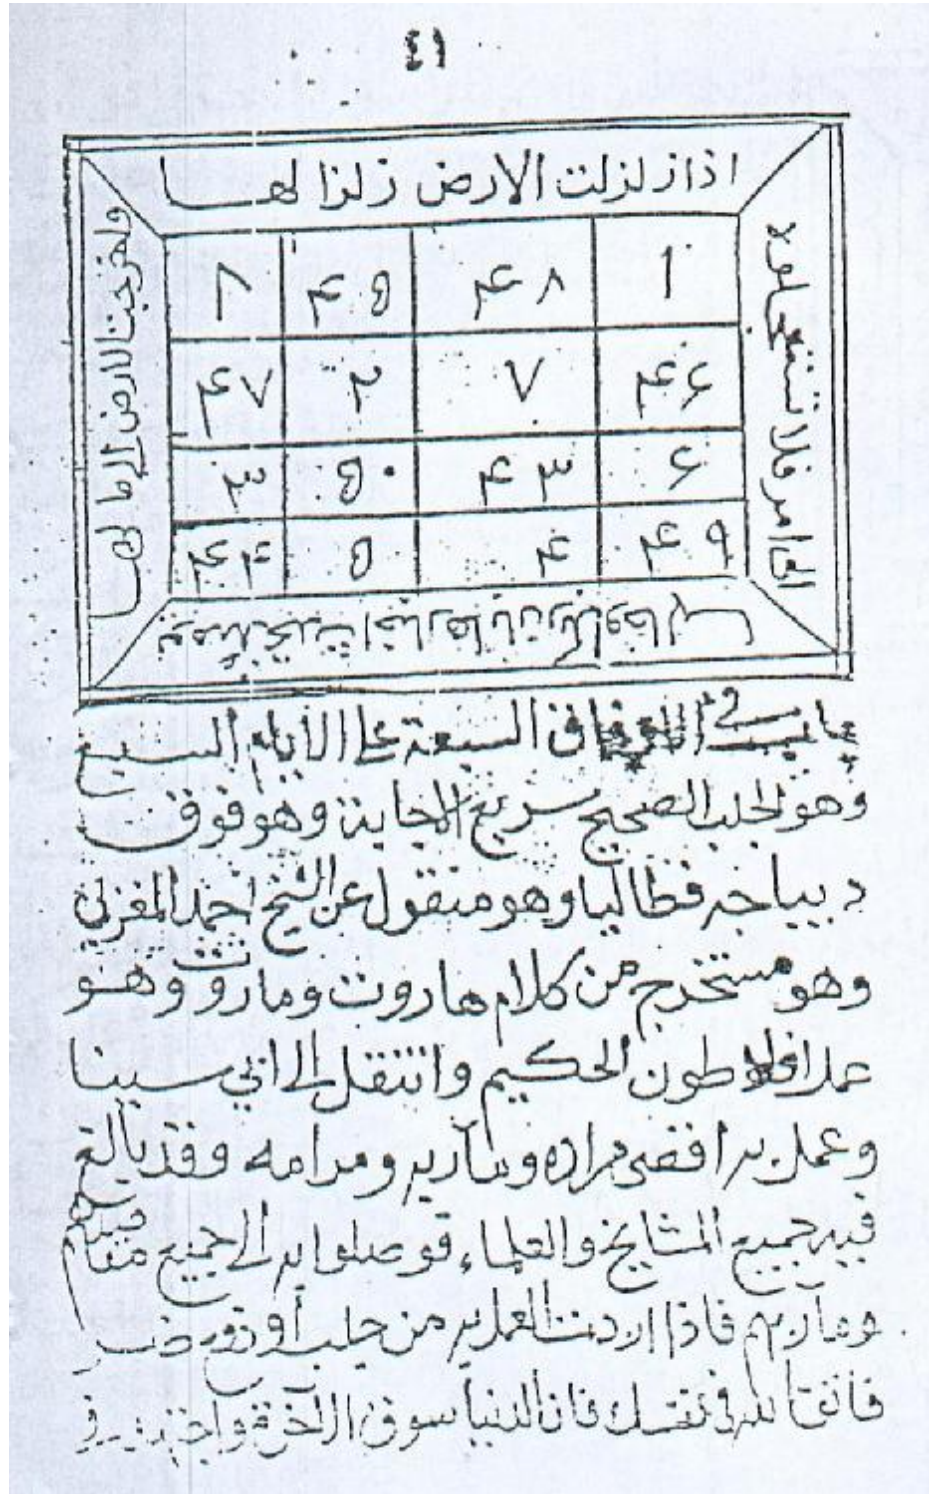 ٤١
اذا زلزلت الارض زلزالها
اتى امر فلا تستعجلوه
واخرجت الارض
١ ٤٨ ٤٥ ٨
٤٦ ٧ ٢ ٤٧
٦ ٤٣ ٥٠ ٣
٤٩ ٤ ٥ ٤٤
باب في السبعة على الأيام السبع
وهو لجلب الصحيح سريع الاجابة وهو فوق
ديباجه وهو منقول عن الشيخ احمد المغربي
وهو مستخرج من كلام هاروت وماروت وهو
عمل افلاطون الحكيم وانتقل الى ابي سينا
وعمل به افقضى مراده ومآربه ومرامه وقد بالغ
فيه جميع المشايخ والعلماء فوصلوا به الى جميع
ومآربهم فاذا اردت العمل به من جلب أو
فاتق الله في نفسك فان الدنيا سوق الآخرة